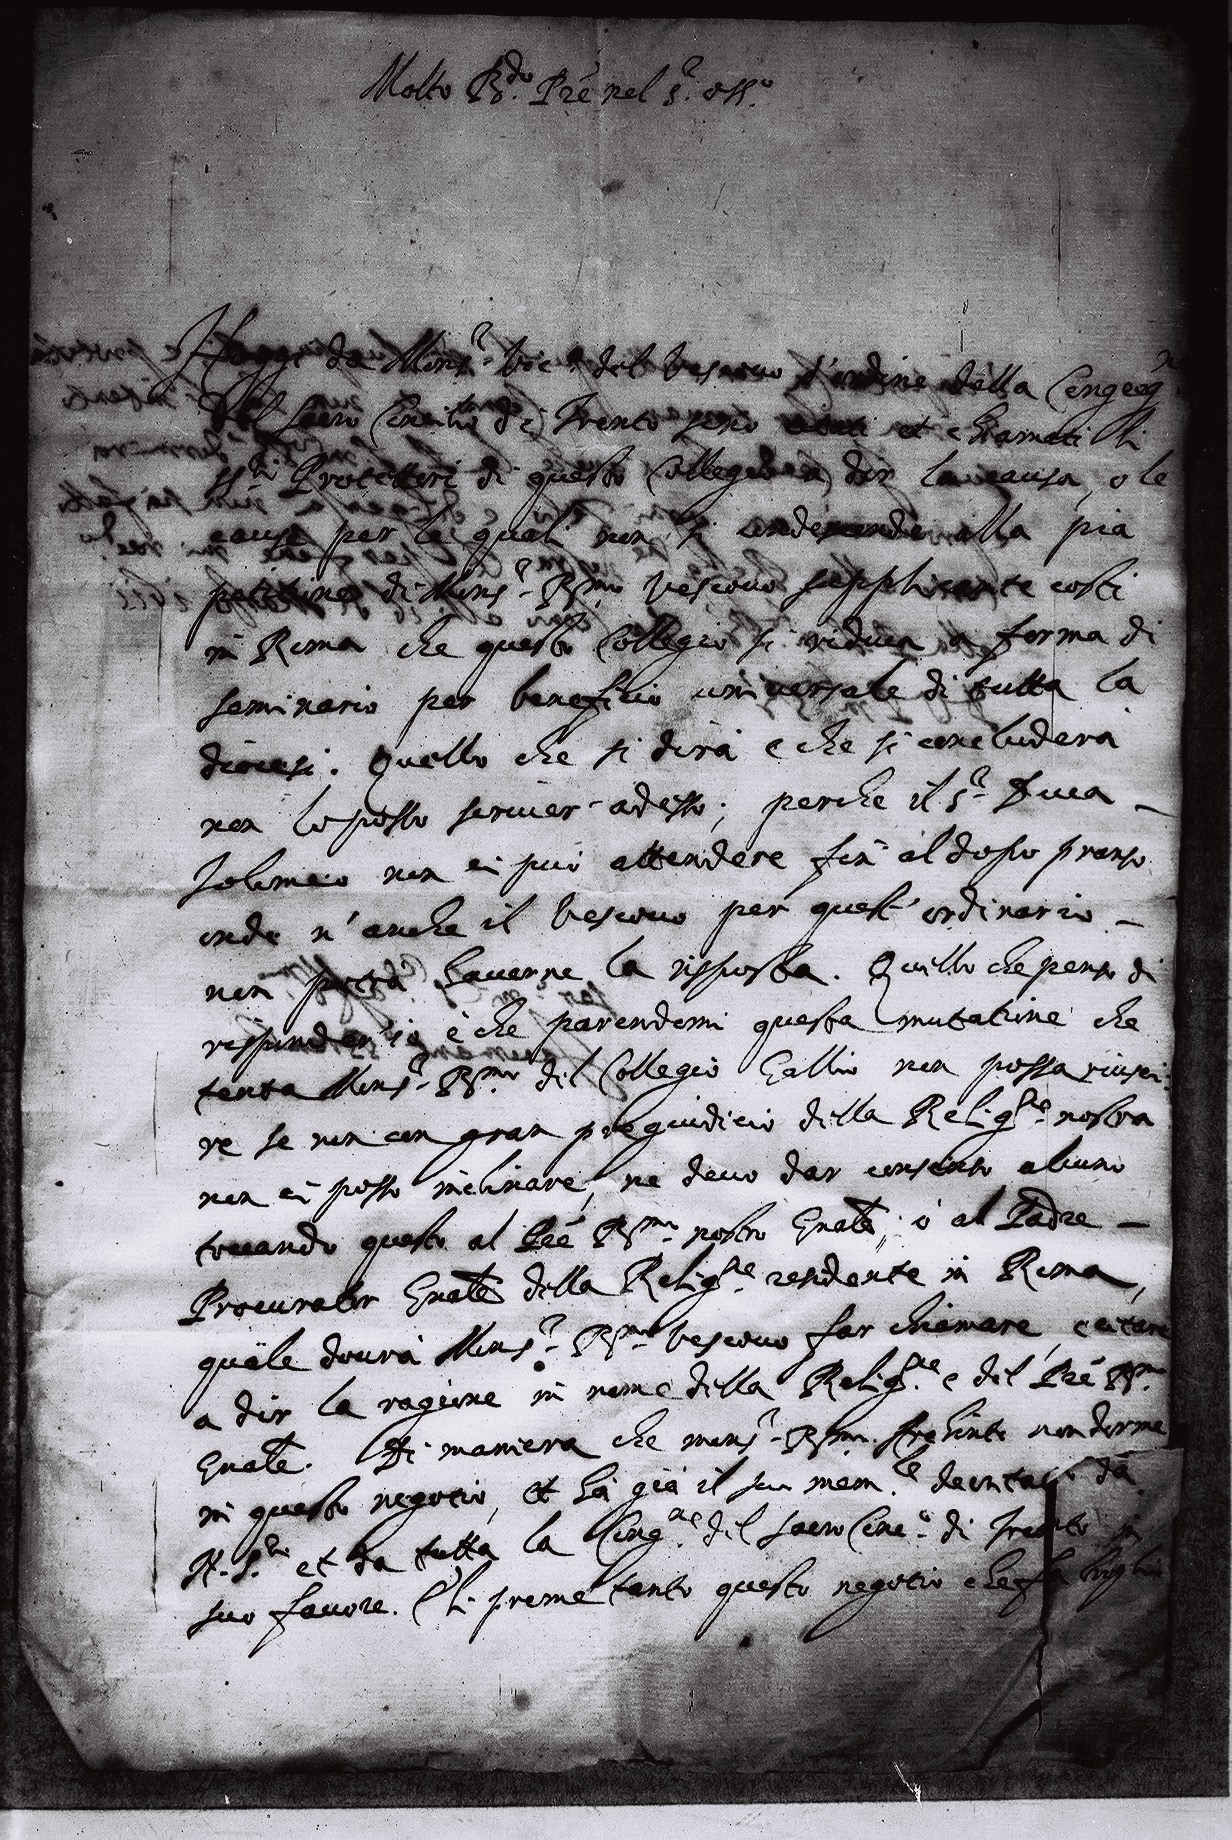 Molto R.do P.re nel S.r oss.o
Hoggi da Mons.r Vic.o del Vescovo d'ordine della Congeog.ne
del sacro Concilio di Trento sono citati et chiamati li
ss.ri Protettori di questo Collegio a dir la causa, o le
cause per le quali non si condescende alla pia
petitione di Mons.r R.mo Vescovo supplicante costi
in Roma che questo Collegio si riduca a forma di
seminario per beneficio universale di tutta la
diocesi. Quello che si dirà e che si concluderà
non lo posso scriver adesso; perche il s.r Duca
Tolomeo non ci può attendere fin al dopo pranso
onde n'anche il Vescovo per quest'ordinario
non potrà haverne la risposta. Quello che penso di
risponder io è che parendomi questa mutatione che
tenta Mons.r R.mo del Collegio Gallio non possa riusci-
re se non con gran pregiudicio della Relig.ne nostra
non ci posso inclinare, ne devo dar consenso alcuno
toccando questo al Prē R.mo nostro Gnale, ò al Padre
Procurator Gnale della Relig.ne residente in Roma,
quale dovrà Mons.r R.mo Vescovo far chiamare, e citare
a dir la ragione in nome della Relig.ne e del Prē R.mo
Gnale. Di maniera che mons.r R.mo non dorme
in questo negotio, et hà già il suo mem.le da
N. S.re et da tutta la Cong.ne del sacro Conc.o di Trento in
suo favore. Gli preme tanto questo negotio che fa